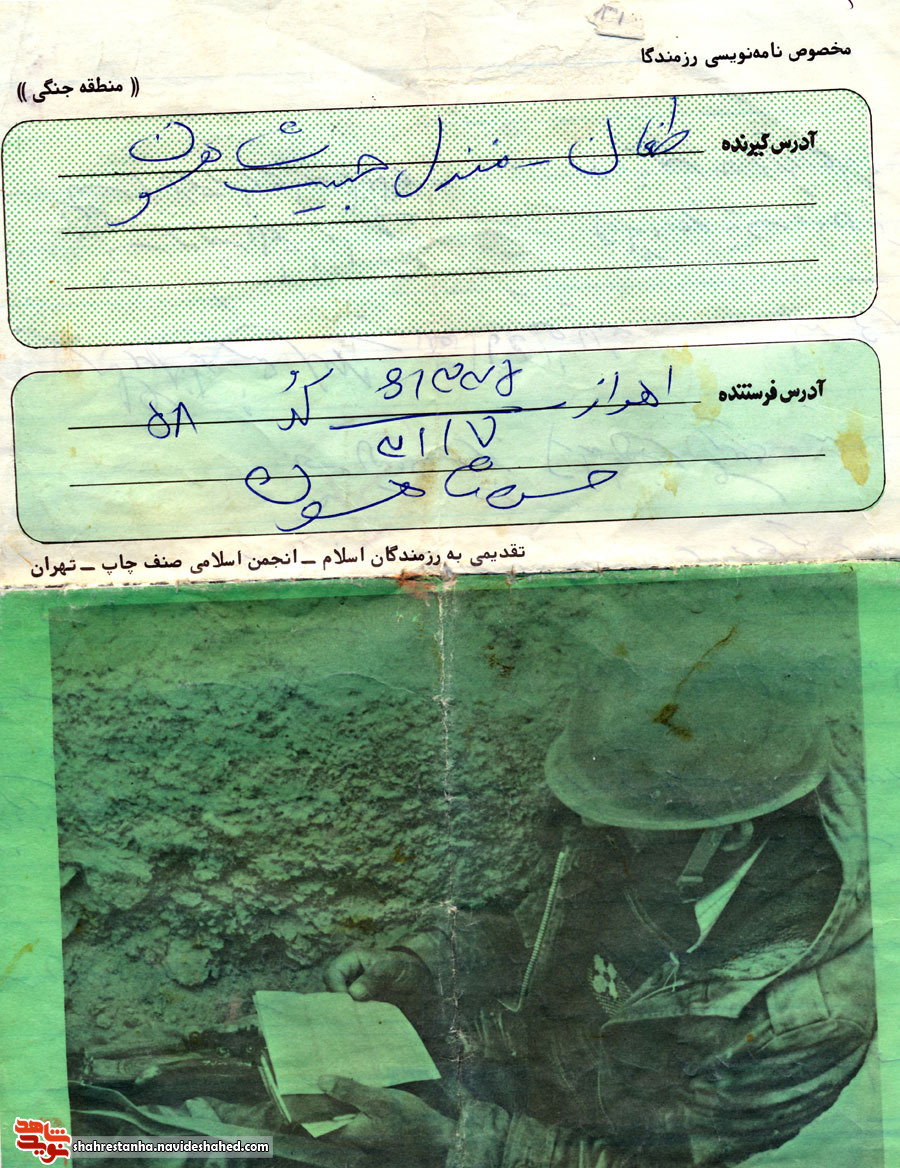 مخصوص نامه‌نویسی رزمندگا
(( منطقه جنگی ))
آدرس گیرنده
طغان - منزل حبیب شاهسون
آدرس فرستنده
اهواز
کُد ۵۸
۳۱۱۷
حسن شاهسون
تقدیمی به رزمندگان اسلام ــ انجمن اسلامی صنف چاپ ــ تهران
نوید شاهد
shahrestanha.navideshahed.com